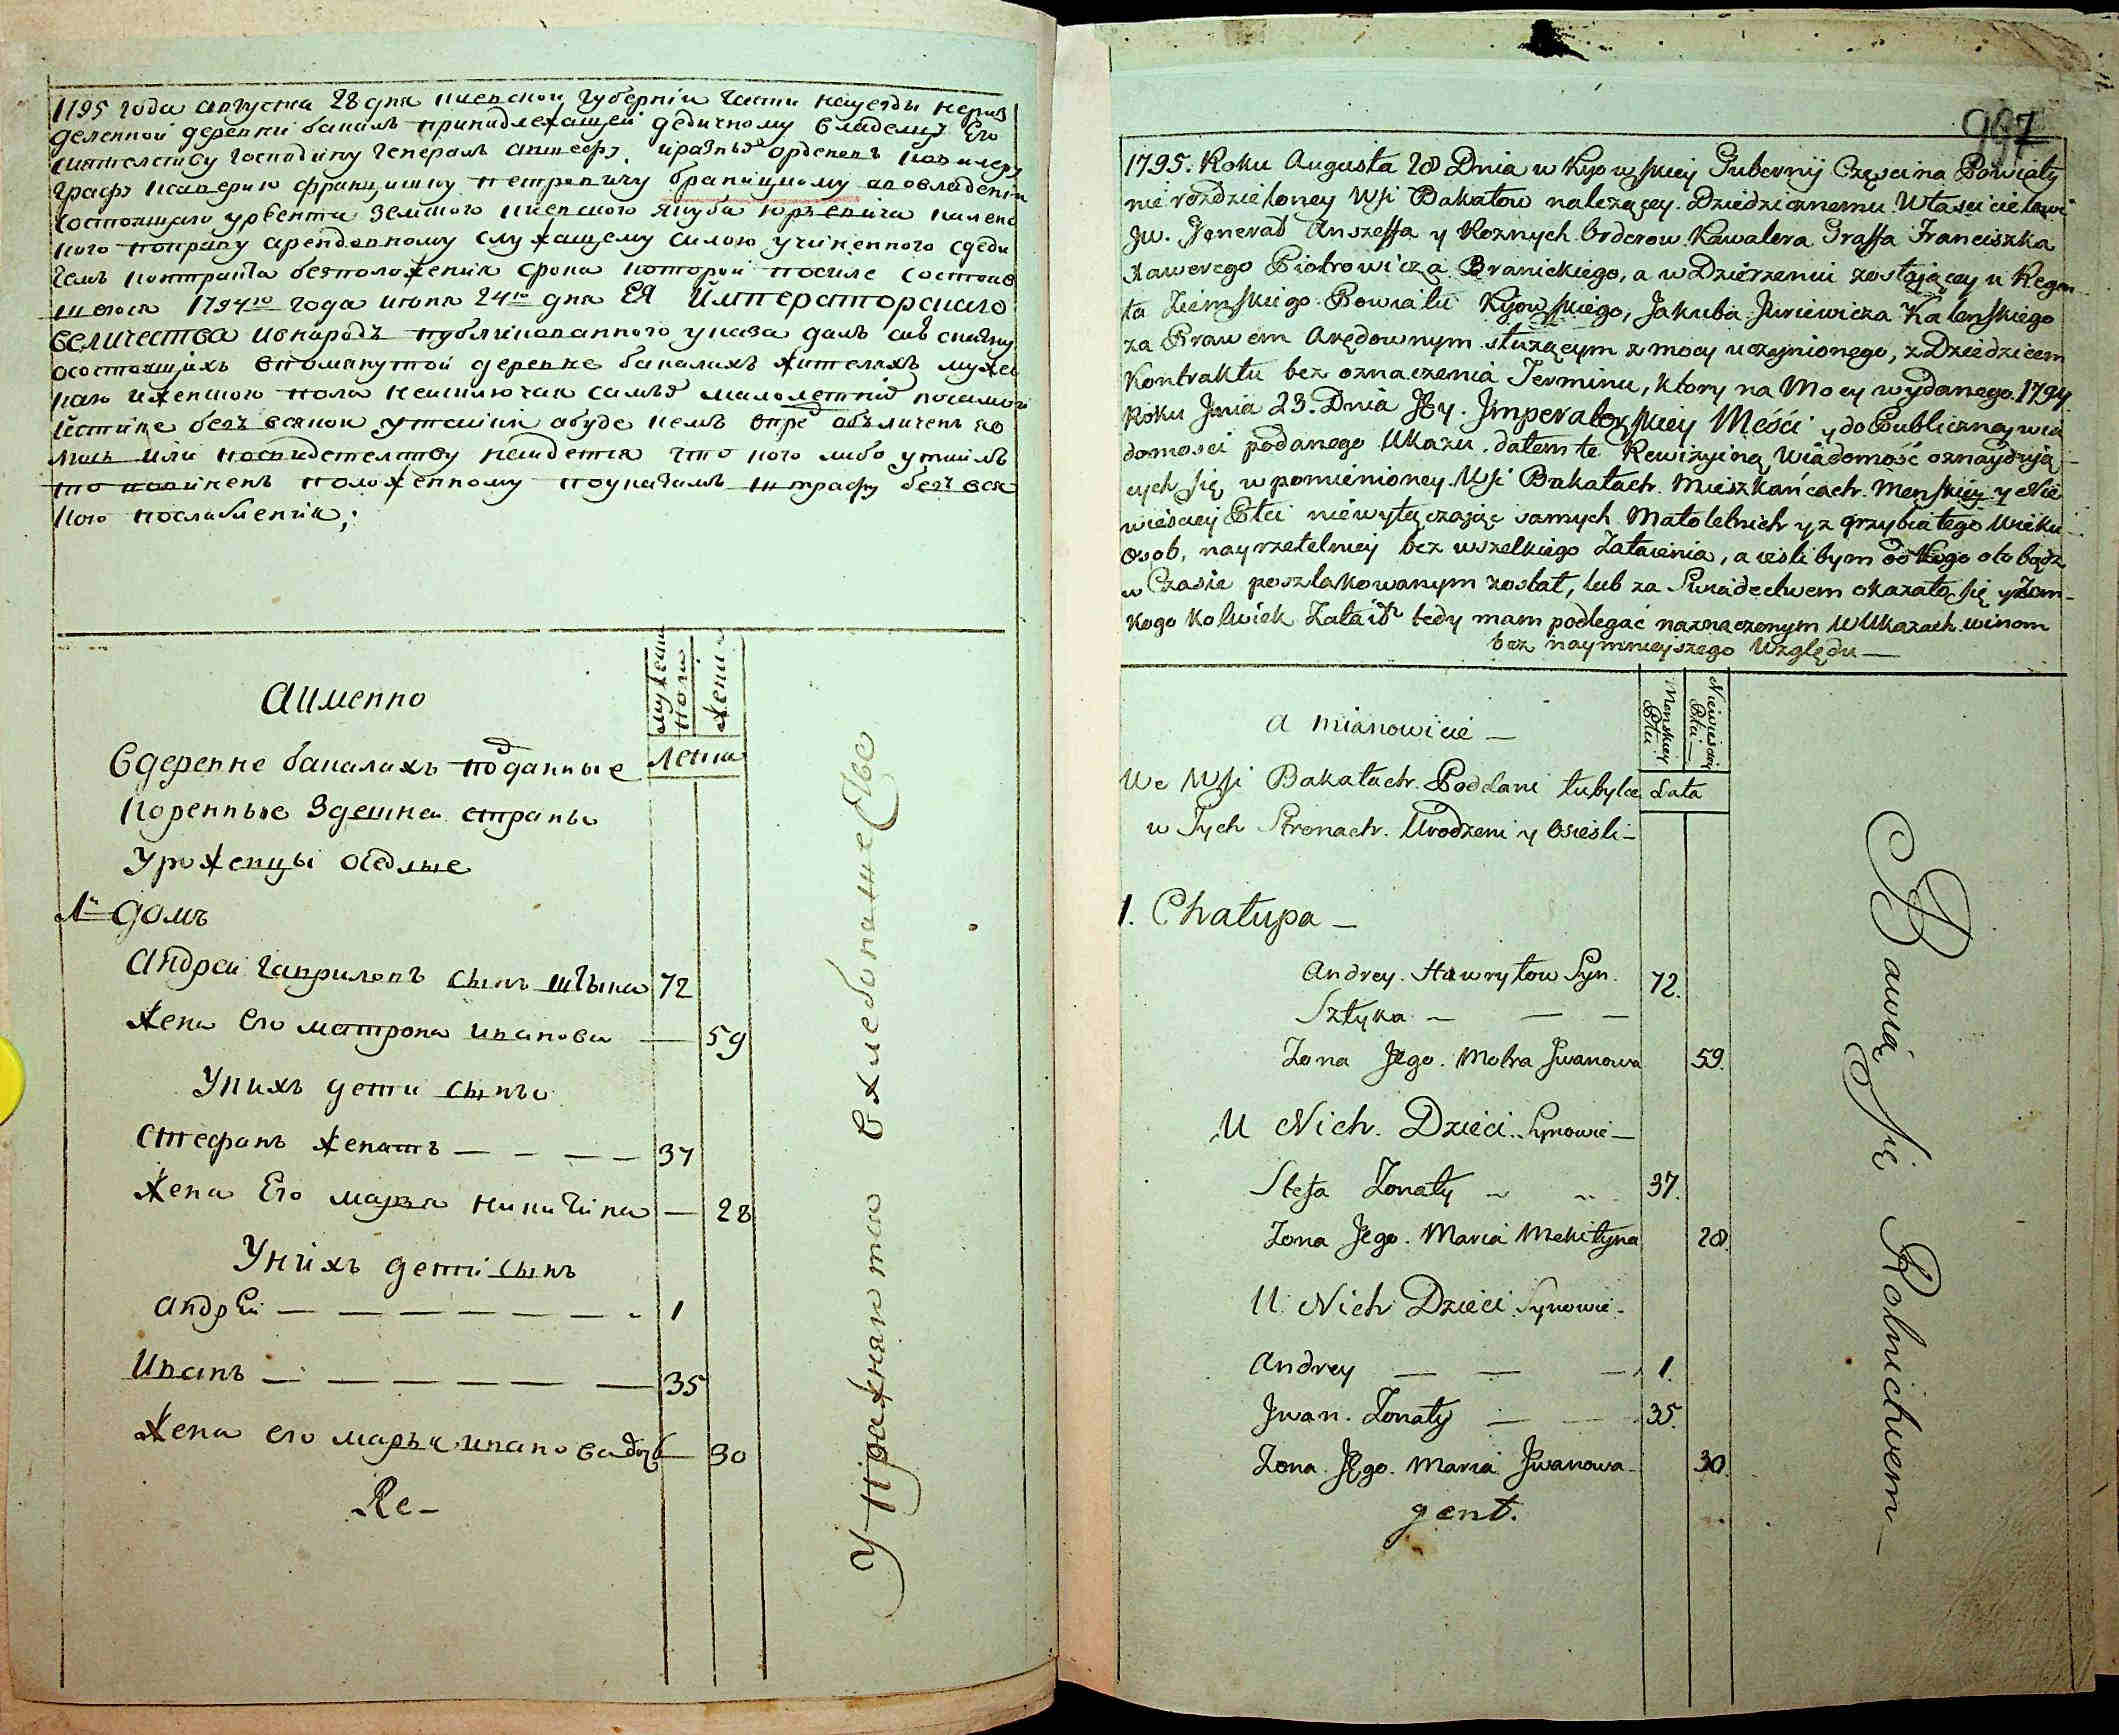 1795 года августа 28 дня киевской губернїи части науезды нераз
деленной деревни бакалъ принадлежащей дедичному владелцу Его
сиятелству господину генералъ аншефу, и разныхъ орденовъ кавалеру
графу ксаверию францишку петровичу браницкому а во владенїи
состоящаго урвента земского киевского якуба юръевича каленс
кого по праву арендовному служащему силою учиненного с деди
чемъ контракта безположения срока которой посиле состояв
шегося 1794го года июня 24го дня ЕЯ Императорскаго
величества и в народъ публикованного указа далъ сию скаску
о состоящихъ в помянутой деревне бакалахъ жителяхъ мужес
каго и женского пола неисключая самыхъ малолетних по самой
истинне безъ всякой утайки а буде кемъ впредъ обличенъ бу
или посвидетелству найдется что кого либо утаилъ
то повиненъ положенному по указамъ штрафу безъ вся
кого послабления;
а именно
мужеска пола
женска
лета
В деревне бакалахъ поданные
коренные здешней страны
уроженцы оседлые
1й домъ
Андрей гавриловъ сынъ штыка 72
жена его матрона иванова — 59
У нихъ дети сыны
Стефанъ женатъ — — — — 37
жена Его марья никитина — 28
У нихъ дети сынъ
андрей — — — — — — — 1
Иванъ — — — — — — 35
жена его марья иванова дочь — 30
Re-
Упражняются в хлебопашестве
997
1795. Roku Augusta 28 Dnia w Kyowskiey Gubernij Części na Powiaty
nie rozdzieloney Wsi Bakałow należącey. Dziedzicznemu Właścicielowi
Jw. Jenerał Anszeffa y Roznych Orderow Kawalera Graffa Franciszka
Xawerego Piotrowicza Branickiego, a w Dzierżeniu zostającey u Regen
ta Ziemskiego Powiatu Kijowskiego, Jakuba Juriewicza Kaleńskiego
za Prawem Arędownym służącym z mocy uczynionego, z Dziedzicem
Kontraktu bez oznaczenia Terminu, ktory na Mocy wydanego 1794.
Roku Junia 23. Dnia Jey. Jmperatorskiey Mości y do Publiczney wia
domości podanego Ukazu. dałem te Rewizyiną wiadomość oznaydują-
cych się w pomienioney Wsi Bakałach. Mieszkańcach. Menskiey y Nie
wiesciey Płci niewyłączając samych Małoletnich y z grzybiałego Wieku-
Osob, nayrzetelniey bez wszelkiego Zataienia, a iesli bym od Kogo oto bądz
w Czasie poszlakowanym został, lub za Swiadectwem okazało się yżem-
Kogo Kolwiek Zataił tedy mam podlegać naznaczonym w Ukazach winom
bez naymnieyszego Względu —
a mianowicie —
Menskiey Płci
Niewiesciey Płci —
Lata
We Wsi Bakałach. Poddani tubylce
w Tych Stronach. Urodzeni y Osiesli —
1. Chałupa —
Andrey. Hawryłow Syn. 72.
Sztyka — — —
Zona Jego. Motra Jwanowa 59.
U Nich. Dzieci. Synowie —
Stefa Zonaty 37.
Zona Jego. Maria Mekityna 28.
U Nich Dzieci Synowie.
Andrey — — — 1.
Jwan. Zonaty — — 35.
Zona Jego. Maria Jwanowa 30.
gent.
Bawią się Rolnictwem —